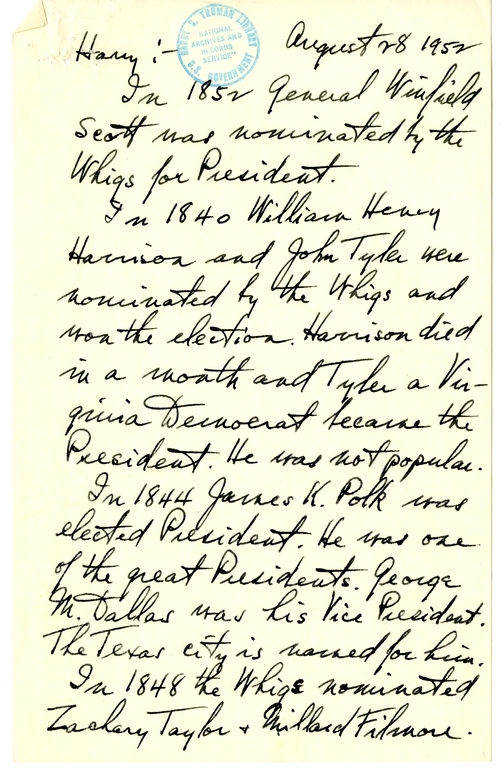 HARRY S. TRUMAN LIBRARY
"NATIONAL
ARCHIVES AND
RECORDS
SERVICE"
U.S. GOVERNMENT
Harry :- August 28 1952
In 1852 General Winfield
Scott was nominated by the
Whigs for President.
In 1840 William Henry
Harrison and John Tyler were
nominated by the Whigs and
won the election. Harrison died
in a month and Tyler a Vir-
ginia Democrat became the
President. He was not popular.
In 1844 James K. Polk was
elected President. He was one
of the great Presidents. George
M. Dallas was his Vice President.
The Texas city is named for him.
In 1848 the Whigs nominated
Zachary Taylor + Millard Filmore.